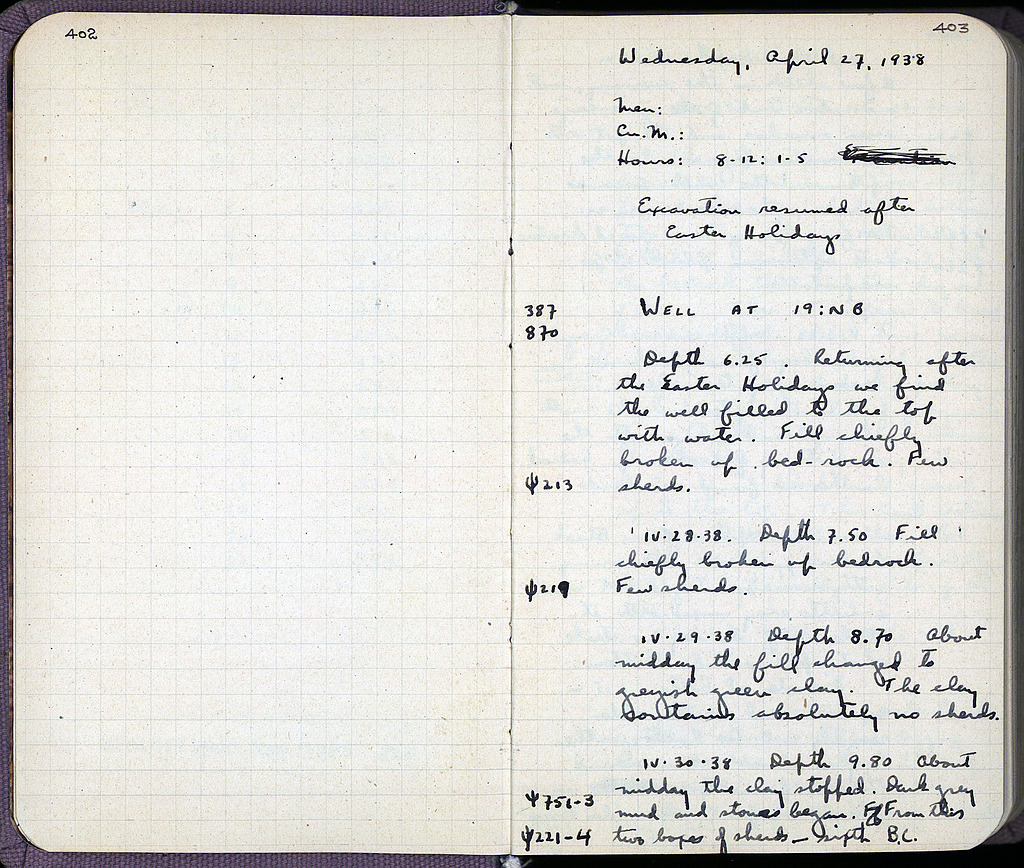 402
403
Wednesday, April 27, 1938
Men:
Cu. M.:
Hours: 8-12: 1-5
Excavation resumed after
Easter Holidays
387 WELL AT 19:NB
870
Depth 6.25. Returning after
the Easter Holidays we find
the well filled to the top
with water. Fill chiefly
broken up bed-rock. Few
ψ213 sherds.
IV·28·38. Depth 7.50 Fill
chiefly broken up bedrock.
ψ219 Few sherds.
IV·29·38 Depth 8.70 About
midday the fill changed to
greyish green clay. The clay
contains absolutely no sherds.
IV·30·38 Depth 9.80 About
midday the clay stopped. Dark grey
ψ751-3 mud and stones began. From this
ψ221-4 two boxes of sherds — sixth B.C.